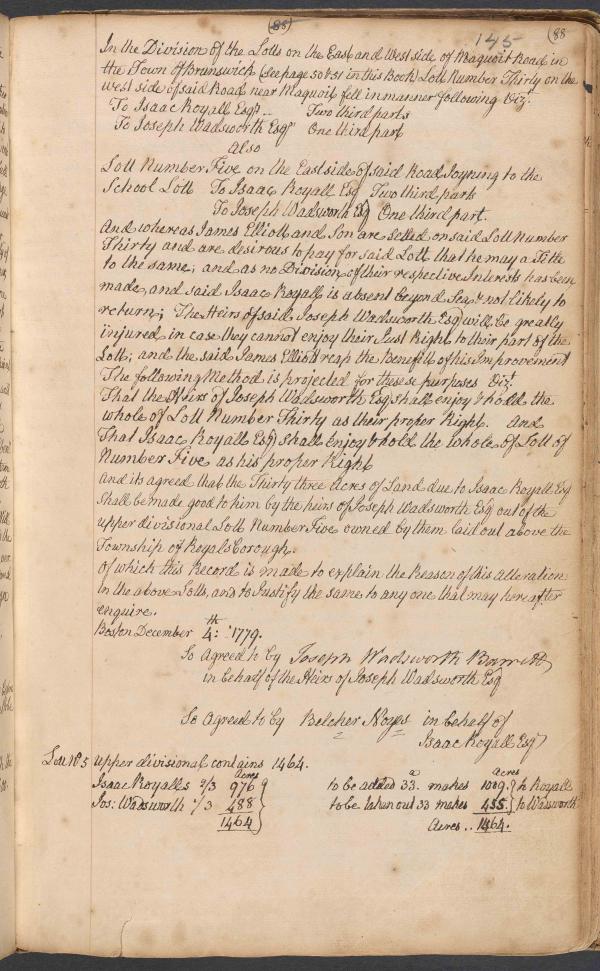 (88)
145
(88
In the Division of the Lotts on the East and West side of Maquoit Road in
the Town of Brunswick (see page 50 & 51 in this Book) Lott Number Thirty on the
West side of said Road near Maquoit fell in manner following Viz.t
To Isaac Royall Esqr .. Two third parts
To Joseph Wadsworth Esqr One third part
Also
Lott Number Five on the East side of said Road Joyning to the
School Lott To Isaac Royall Esq Two third parts
To Joseph Wadsworth Esq One third part.
And whereas James Elliott and Son are Setled on said Lott Number
Thirty and are desirous to pay for said Lott that he may a Title
to the same; and as no Division of their respective Interests has been
made, and said Isaac Royall is absent beyond Sea & not likely to
return; The Heirs of said Joseph Wadsworth Esq will be greatly
injured in case they cannot enjoy their Just Right to their part of the
Lott; and the said James Elliott reap the Benefitt of his Improvement
The following Method is projected for these purposes Viz.t
That the Heirs of Joseph Wadsworth Esq shall enjoy & hold the
whole of Lott Number Thirty as their proper Right. And
That Isaac Royall Esq shall Enjoy & hold the whole of Lott of
Number Five as his proper Right
and its agreed that the Thirty three Acres of Land due to Isaac Royall Esq
Shall be made good to him by the heirs of Joseph Wadsworth Esq out of the
upper divisional Lott Number Five owned by them laid out above the
Township of Royalsborough.
of which this Record is made to explain the Reason of this Alteration
in the above Lotts, and to Justify the same to any one that may hereafter
enquire.
Boston December 4:th 1779.
So Agreed to by Joseph Wadsworth Barrett
in behalf of the Heirs of Joseph Wadsworth Esq
So Agreed to by Belcher Noyes in behalf of
Isaac Royall Esqr
Lott No 5 upper divisional contains 1464.
Acres a Acres
Isaac Royalls 2/3 976 to be added 33. makes 1009. to Royall
Jos: Wadsworth 1/3 488 to be taken out 33 makes 455. to Wadsworth
1464 Acres .. 1464.